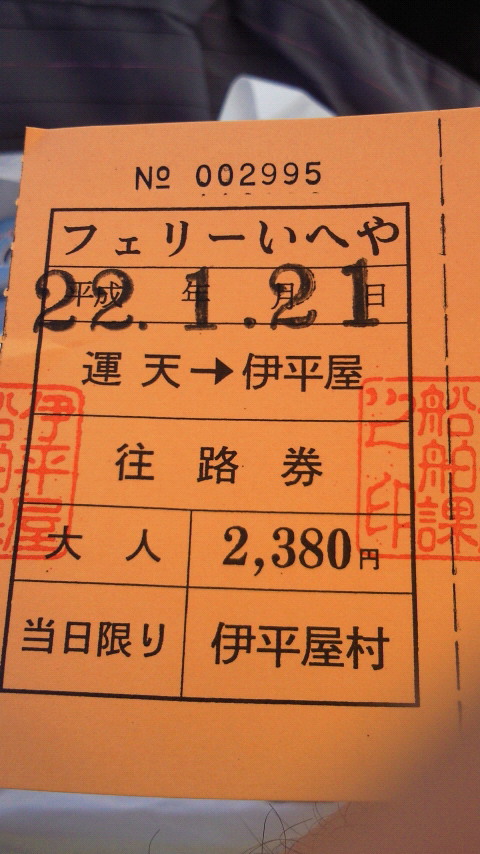 Nº 002995
フェリーいへや
平成 年 月 日
22.1.21
運天→伊平屋
往路券
大人 2,380円
当日限り 伊平屋村
伊平屋
船舶課
船舶課
之印